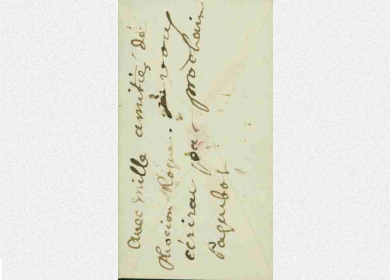 Avec mille amitiés de
Phocion Roque. Je vous
écrirai par prochain
Paquebot